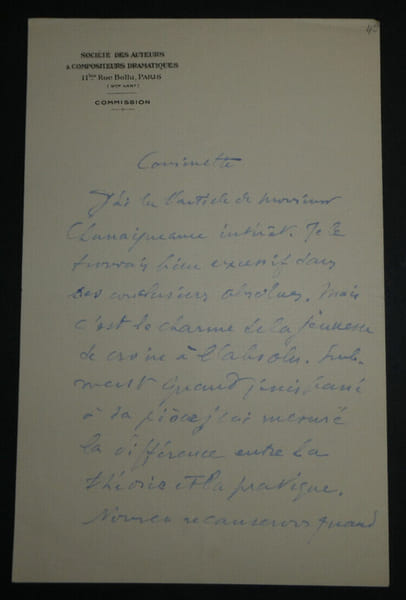 SOCIÉTÉ DES AUTEURS
& COMPOSITEURS DRAMATIQUES
11bis Rue Ballu, PARIS
(IXme ARRt)
COMMISSION
J'ai lu l'article de monsieur
intérêt. Je le
trouvais bien excessif dans
ses conclusions absolues. Mais
c'est le charme de la jeunesse
de croire à l'absolu. Seule-
ment quand
à sa pièce j'ai mesuré
la différence entre la
théorie et la pratique.
Nous en recauserons quand